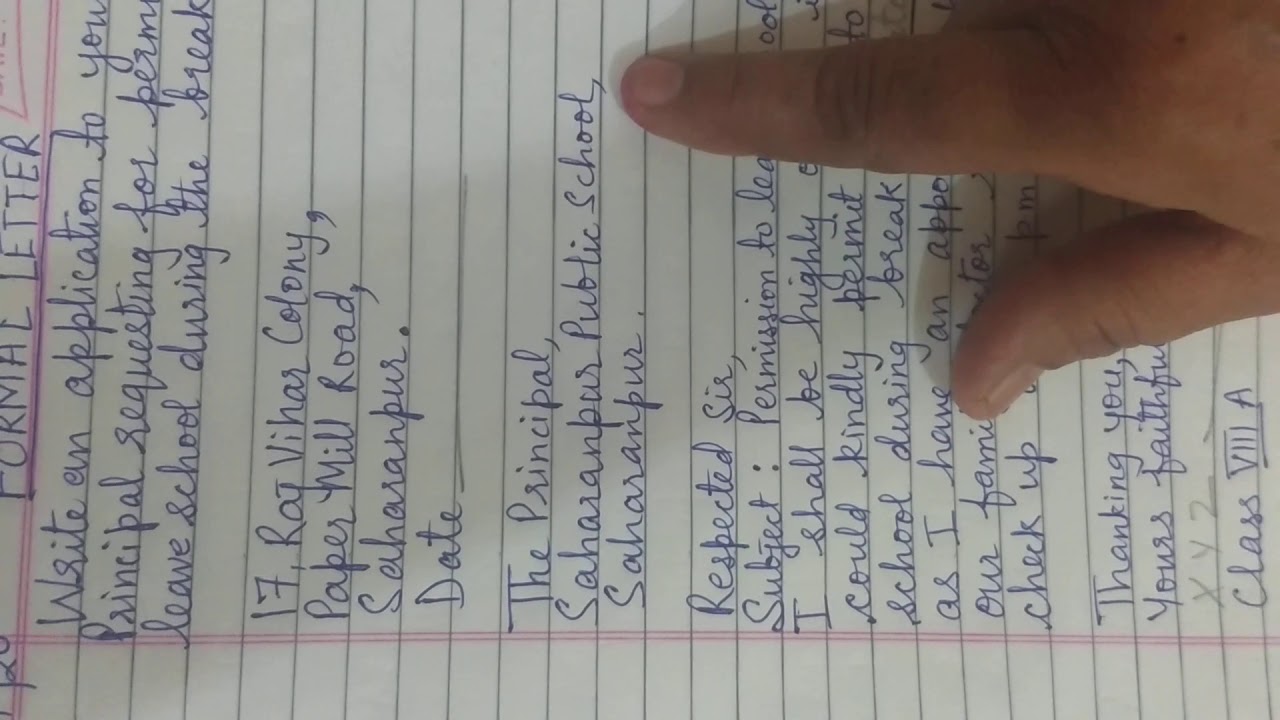 FORMAL LETTER
Write an application to you
Principal requesting for perm
leave school during the break
17, Raj Vihar Colony,
Paper Mill Road,
Saharanpur.
Date
The Principal,
Saharanpur Public School,
Saharanpur.
Respected Sir,
Subject : Permission to lea ool
I shall be highly
could kindly permit to
school during break
as I have an appo
our fami
check up pm
Thanking you,
Yours faithfu
X Y Z
Class VIII A